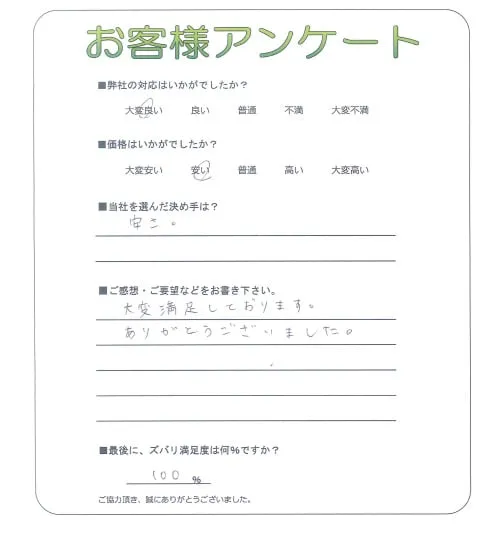 お客様アンケート
■弊社の対応はいかがでしたか？
大変良い 良い 普通 不満 大変不満
■価格はいかがでしたか？
大変安い 安い 普通 高い 大変高い
■当社を選んだ決め手は？
安さ。
■ご感想・ご要望などをお書き下さい。
大変満足しております。
ありがとうございました。
■最後に、ズバリ満足度は何%ですか？
100 %
ご協力頂き、誠にありがとうございました。